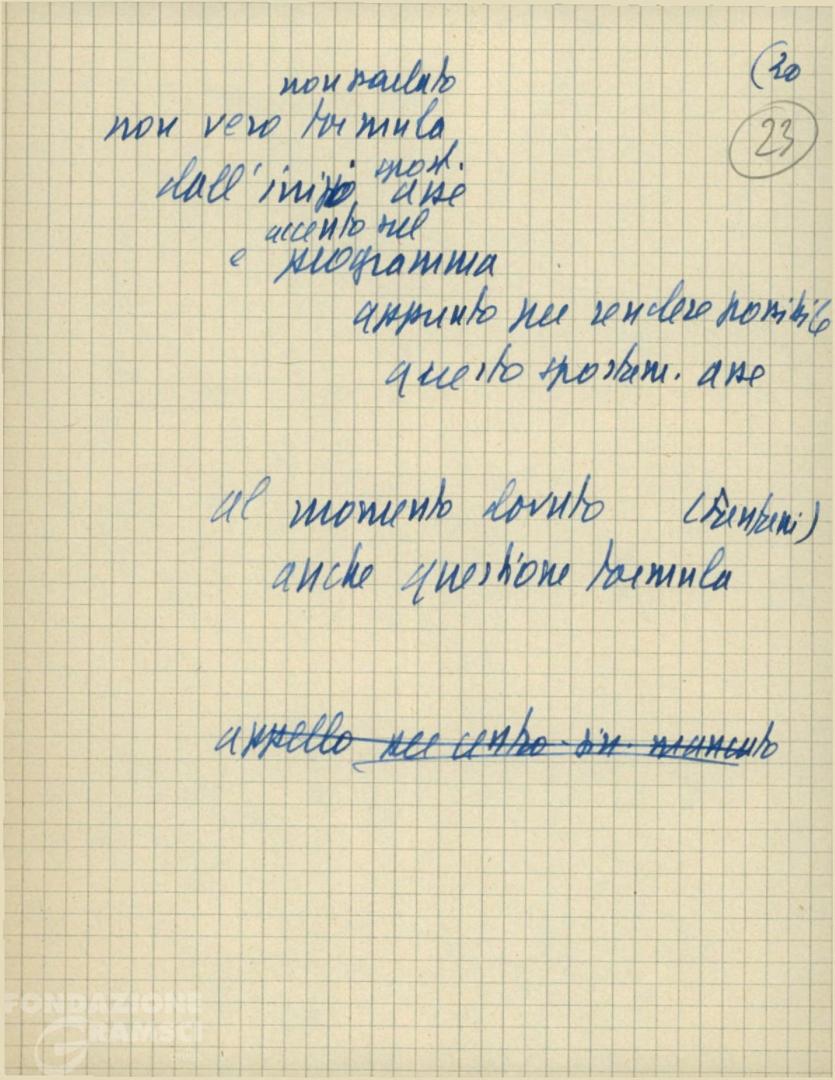 (20
23
non parlato
non vero formula
spost.
dall'inizio asse
accento sul
e programma
appunto per rendere possibile
questo spostam. asse
al momento dovuto (Funtani)
anche questione formula
appello per centro-sin. mancato
FONDAZIONE
GRAMSCI